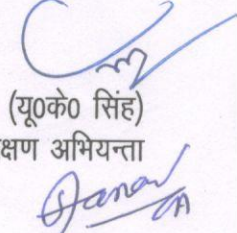 (यू0के0 सिंह)
क्षण अभियन्ता